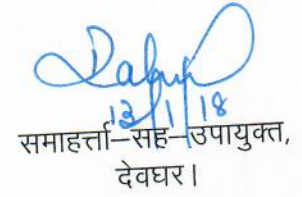 13/1/18
समाहर्त्ता–सह–उपायुक्त,
देवघर।